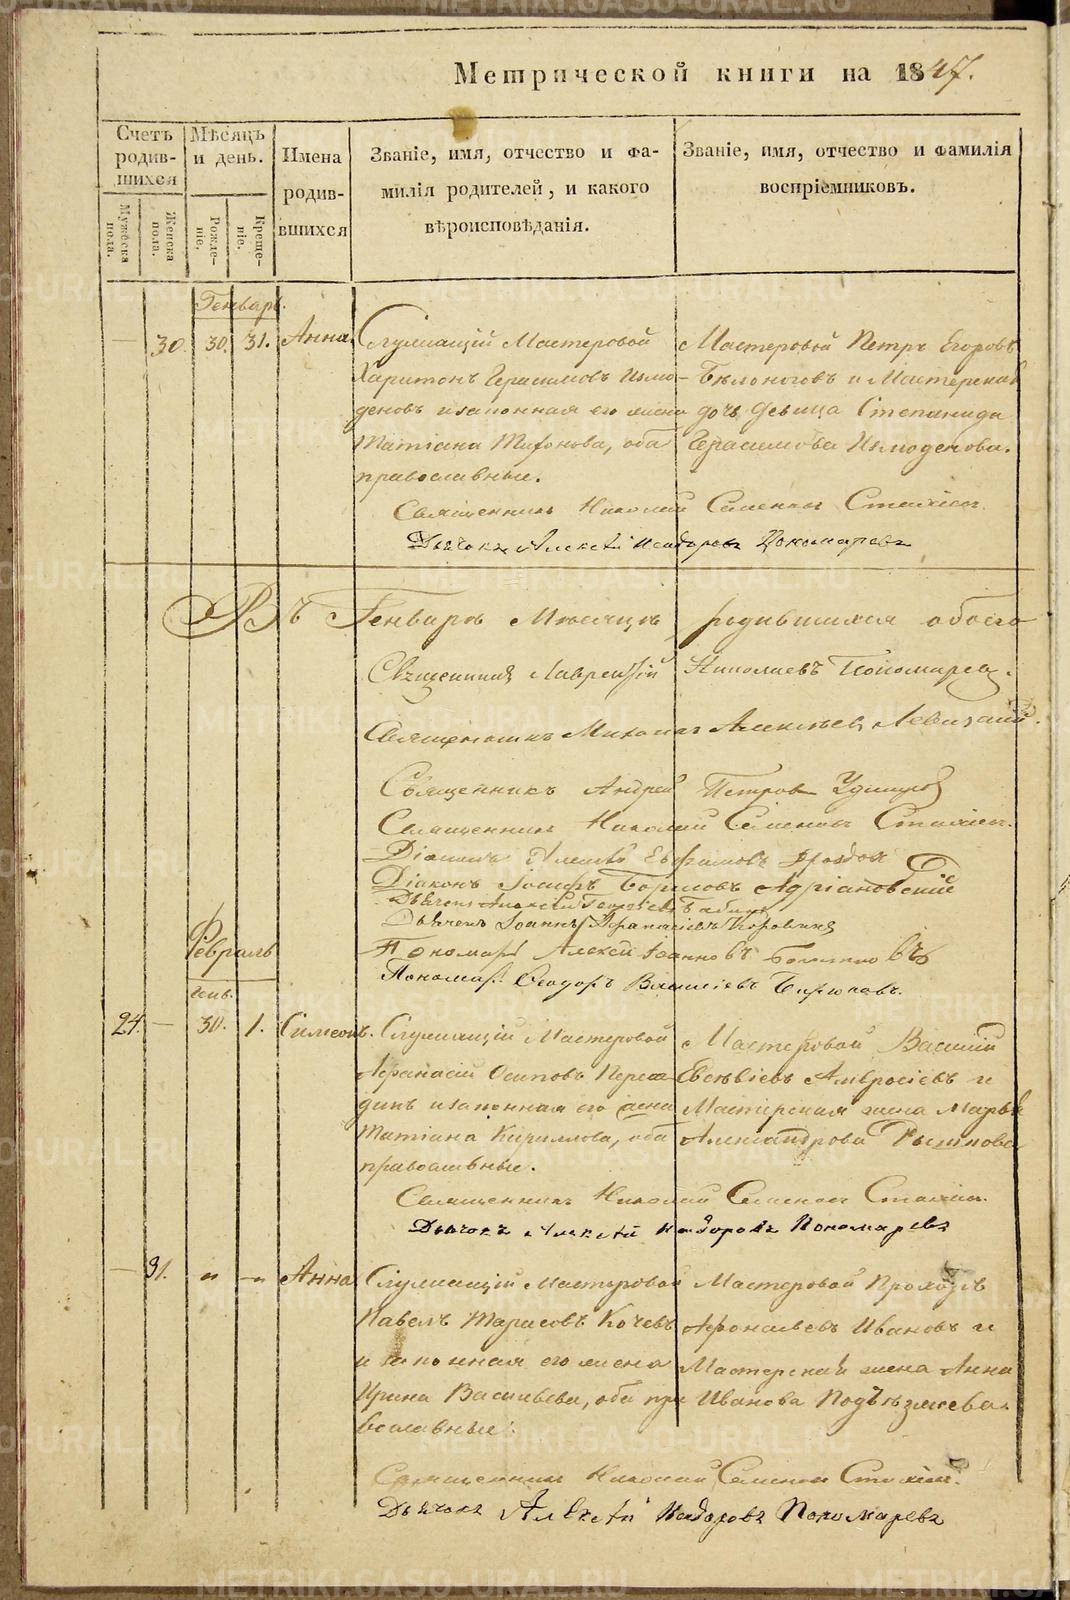 Метрической книги на 1847.
Счетъ родив-шихся
Мѣсяцъ и день.
Имена родив-вшихся
Званіе, имя, отчество и фа-
милія родителей, и какого
вѣроисповѣданія.
Званіе, имя, отчество и фамилія
воспріемниковъ.
Мужеска пола.
Женска пола.
Рожде-ніе.
Креще-ніе.
Генварь.
— 30. 30. 31. Анна
Служащій Мастеровой
Харитонъ Герасимовъ Измо-
деновъ и законная его жена
Татіана Тифонова, оба
православные.
Мастеровой Петръ Егоровъ
Бѣлоноговъ и Мастерская
дочь девица Степанида
Герасимова Измоденова.
Священникъ Николай Семенов
Дьячокъ Алексѣй Исидоровъ Пономаревъ
Въ Генварѣ Мѣсяцѣ родившихся обоего
Священникъ Лаврентій Николаевъ Пономарев.
Священникъ Михаилъ Алексѣев Левицкій.
Священникъ Андрей Петров Удинцов
Священникъ Николай Семенов
Діаконъ Алексѣй Евфимовъ Дроздов
Діаконъ Іосифъ Борисовъ Адріановскій
Дьячекъ Алексѣй Георгіевъ
Дьячекъ Іоаннъ Афанасіевъ Коровинъ
Пономарь Алексѣй Іоанновъ
Пономарь Феодоръ Василіевъ Бирюковъ.
Февраль
Генв.
24. — 30. 1. Симеонъ.
Служащій Мастеровой
Афанасій Осиповъ Перва-
динъ и законная его жена
Татіана Кириллова, оба
православные.
Мастеровой Василій
Евсѣвіевъ Амвросіевъ и
Мастерская жена Марья
Александрова
Священникъ Николай Семенов
Дьячокъ Алексѣй Исидоровъ Пономаревъ
— 31. „ „ Анна
Служащій Мастеровой
Павелъ Тарасовъ Кочевъ
и законная его жена
Ирина Васильева, оба пра-
вославные.
Мастеровой
Афонасьевъ Ивановъ и
Мастерская жена Анна
Иванова Подъѣзжева.
Священникъ Николай Семенов
Дьячокъ Алексѣй Исидоровъ Пономаревъ
METRIKI.GASO-URAL.RU